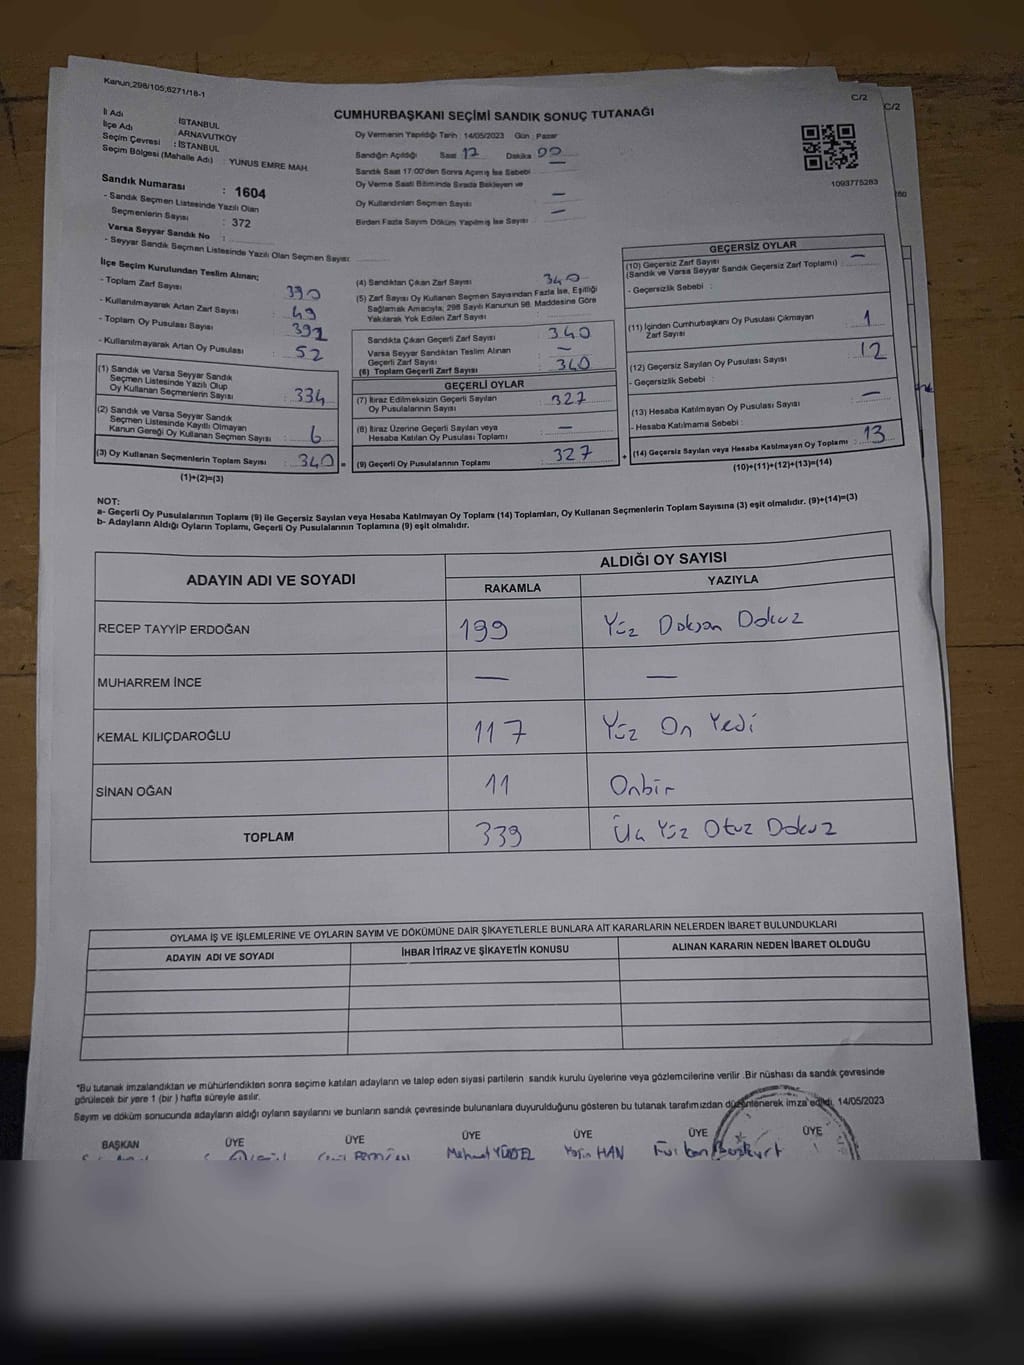 Kanun;298/105,6271/18-1
C/2
C/2
CUMHURBAŞKANI SEÇİMİ SANDIK SONUÇ TUTANAĞI
İl Adı : İSTANBUL
İlçe Adı : ARNAVUTKÖY
Seçim Çevresi : İSTANBUL
Seçim Bölgesi (Mahalle Adı) : YUNUS EMRE MAH.
Sandık Numarası : 1604
- Sandık Seçmen Listesinde Yazılı Olan
Seçmenlerin Sayısı : 372
Varsa Seyyar Sandık No :
- Seyyar Sandık Seçmen Listesinde Yazılı Olan Seçmen Sayısı:
Oy Vermenin Yapıldığı Tarih : 14/05/2023 Gün : Pazar
Sandığın Açıldığı Saat 17 Dakika 00
Sandık Saat 17:00'den Sonra Açılmış İse Sebebi
Oy Verme Saati Bitiminde Sırada Bekleyen ve
Oy Kullandırılan Seçmen Sayısı —
Birden Fazla Sayım Döküm Yapılmış İse Sayısı —
1093775283
İlçe Seçim Kurulundan Teslim Alınan;
- Toplam Zarf Sayısı : 390
- Kullanılmayarak Artan Zarf Sayısı : 49
- Toplam Oy Pusulası Sayısı : 392
- Kullanılmayarak Artan Oy Pusulası : 52
(1) Sandık ve Varsa Seyyar Sandık
Seçmen Listesinde Yazılı Olup
Oy Kullanan Seçmenlerin Sayısı : 334
(2) Sandık ve Varsa Seyyar Sandık
Seçmen Listesinde Kayıtlı Olmayan
Kanun Gereği Oy Kullanan Seçmen Sayısı : 6
(3) Oy Kullanan Seçmenlerin Toplam Sayısı : 340 =
(1)+(2)=(3)
(4) Sandıktan Çıkan Zarf Sayısı 340
(5) Zarf Sayısı Oy Kullanan Seçmen Sayısından Fazla İse, Eşitliği
Sağlamak Amacıyla; 298 Sayılı Kanunun 98. Maddesine Göre
Yakılarak Yok Edilen Zarf Sayısı :
Sandıkta Çıkan Geçerli Zarf Sayısı : 340
Varsa Seyyar Sandıktan Teslim Alınan
Geçerli Zarf Sayısı : —
(6) Toplam Geçerli Zarf Sayısı : 340
GEÇERLİ OYLAR
(7) İtiraz Edilmeksizin Geçerli Sayılan
Oy Pusulalarının Sayısı : 327
(8) İtiraz Üzerine Geçerli Sayılan veya
Hesaba Katılan Oy Pusulası Toplamı : —
(9) Geçerli Oy Pusulalarının Toplamı : 327 +
GEÇERSİZ OYLAR
(10) Geçersiz Zarf Sayısı : —
(Sandık ve Varsa Seyyar Sandık Geçersiz Zarf Toplamı)
- Geçersizlik Sebebi :
(11) İçinden Cumhurbaşkanı Oy Pusulası Çıkmayan
Zarf Sayısı : 1
(12) Geçersiz Sayılan Oy Pusulası Sayısı : 12
- Geçersizlik Sebebi :
(13) Hesaba Katılmayan Oy Pusulası Sayısı : —
- Hesaba Katılmama Sebebi :
(14) Geçersiz Sayılan veya Hesaba Katılmayan Oy Toplamı : 13
(10)+(11)+(12)+(13)=(14)
NOT:
a- Geçerli Oy Pusulalarının Toplamı (9) ile Geçersiz Sayılan veya Hesaba Katılmayan Oy Toplamı (14) Toplamları, Oy Kullanan Seçmenlerin Toplam Sayısına (3) eşit olmalıdır. (9)+(14)=(3)
b- Adayların Aldığı Oyların Toplamı, Geçerli Oy Pusulalarının Toplamına (9) eşit olmalıdır.
ADAYIN ADI VE SOYADI
ALDIĞI OY SAYISI
RAKAMLA YAZIYLA
RECEP TAYYİP ERDOĞAN 199 Yüz Doksan Dokuz
MUHARREM İNCE — —
KEMAL KILIÇDAROĞLU 117 Yüz On Yedi
SİNAN OĞAN 11 Onbir
TOPLAM 339 Üç Yüz Otuz Dokuz
OYLAMA İŞ VE İŞLEMLERİNE VE OYLARIN SAYIM VE DÖKÜMÜNE DAİR ŞİKAYETLERLE BUNLARA AİT KARARLARIN NELERDEN İBARET BULUNDUKLARI
ADAYIN ADI VE SOYADI İHBAR İTİRAZ VE ŞİKAYETİN KONUSU ALINAN KARARIN NEDEN İBARET OLDUĞU
*Bu tutanak imzalandıktan ve mühürlendikten sonra seçime katılan adayların ve talep eden siyasi partilerin sandık kurulu üyelerine veya gözlemcilerine verilir .Bir nüshası da sandık çevresinde
görülecek bir yere 1 (bir ) hafta süreyle asılır.
Sayım ve döküm sonucunda adayların aldığı oyların sayılarını ve bunların sandık çevresinde bulunanlara duyurulduğunu gösteren bu tutanak tarafımızdan düzenlenerek imza edildi. 14/05/2023
BAŞKAN ÜYE ÜYE ÜYE ÜYE ÜYE ÜYE
Mehmet YÜCEL Yasin HAN Furkan Bozkurt